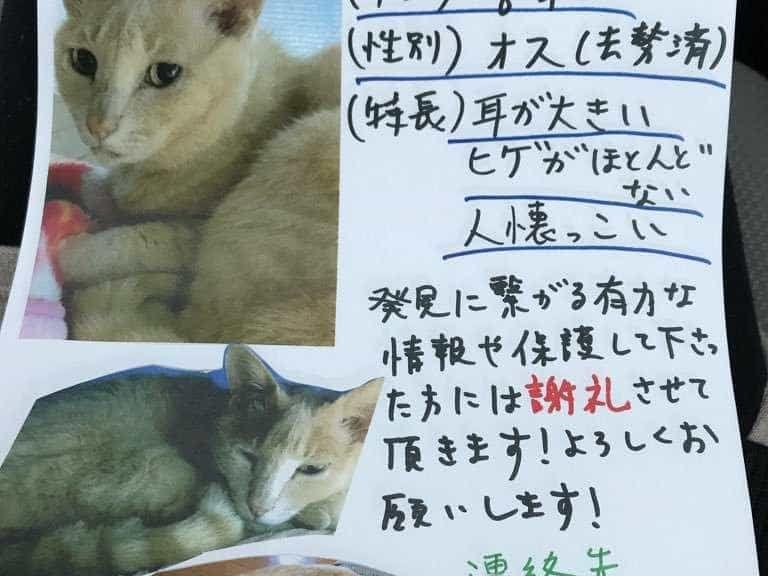 (性別) オス(去勢済)
(特長) 耳が大きい
ヒゲがほとんど
ない
人懐っこい
発見に繋がる有力な
情報や保護して下さっ
た方には謝礼させて
頂きます!よろしくお
願いします!
連絡先